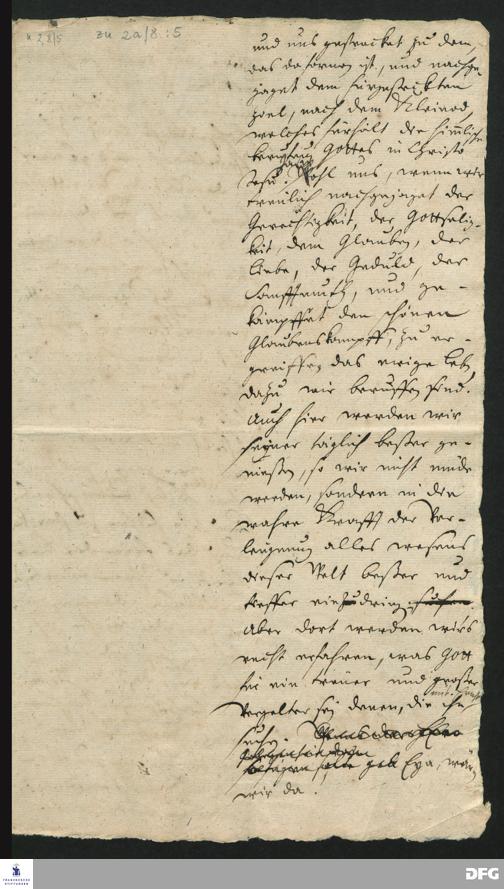 zu 2a/8 : 5
und uns gestrecket zu dem,
das da fornen ist, und nachge-
jaget dem fürgesteckten
ziel, nach dem Kleinod,
welches fürhält die himlische
beruffung Gottes in Christo
Jesu. Wohl uns, wenn wir
treulich nachgejaget der
Gerechtigkeit, der Gottselig-
keit, dem Glauben, der
liebe, der Geduld, der
Sanfftmuth, und ge-
kämpffet den schönen
Glaubenskampff, zu er-
greiffen das ewige leben
dazu wir beruffen sind.
Auch hier werden wir
seiner täglich beßer ge-
nießen, so wir nicht müde
werden, sondern in die
wahre Krafft der Ver-
leugnung alles wesens
dieser Welt beßer und
tieffer einzudringen
Aber dort werden wirs
recht erfahren, was Gott
für ein treuer und großer
Vergelter sei denen, die ihn
suchen. Eya, wären
wir da.
FRANCKESCHE
STIFTUNGEN
DFG